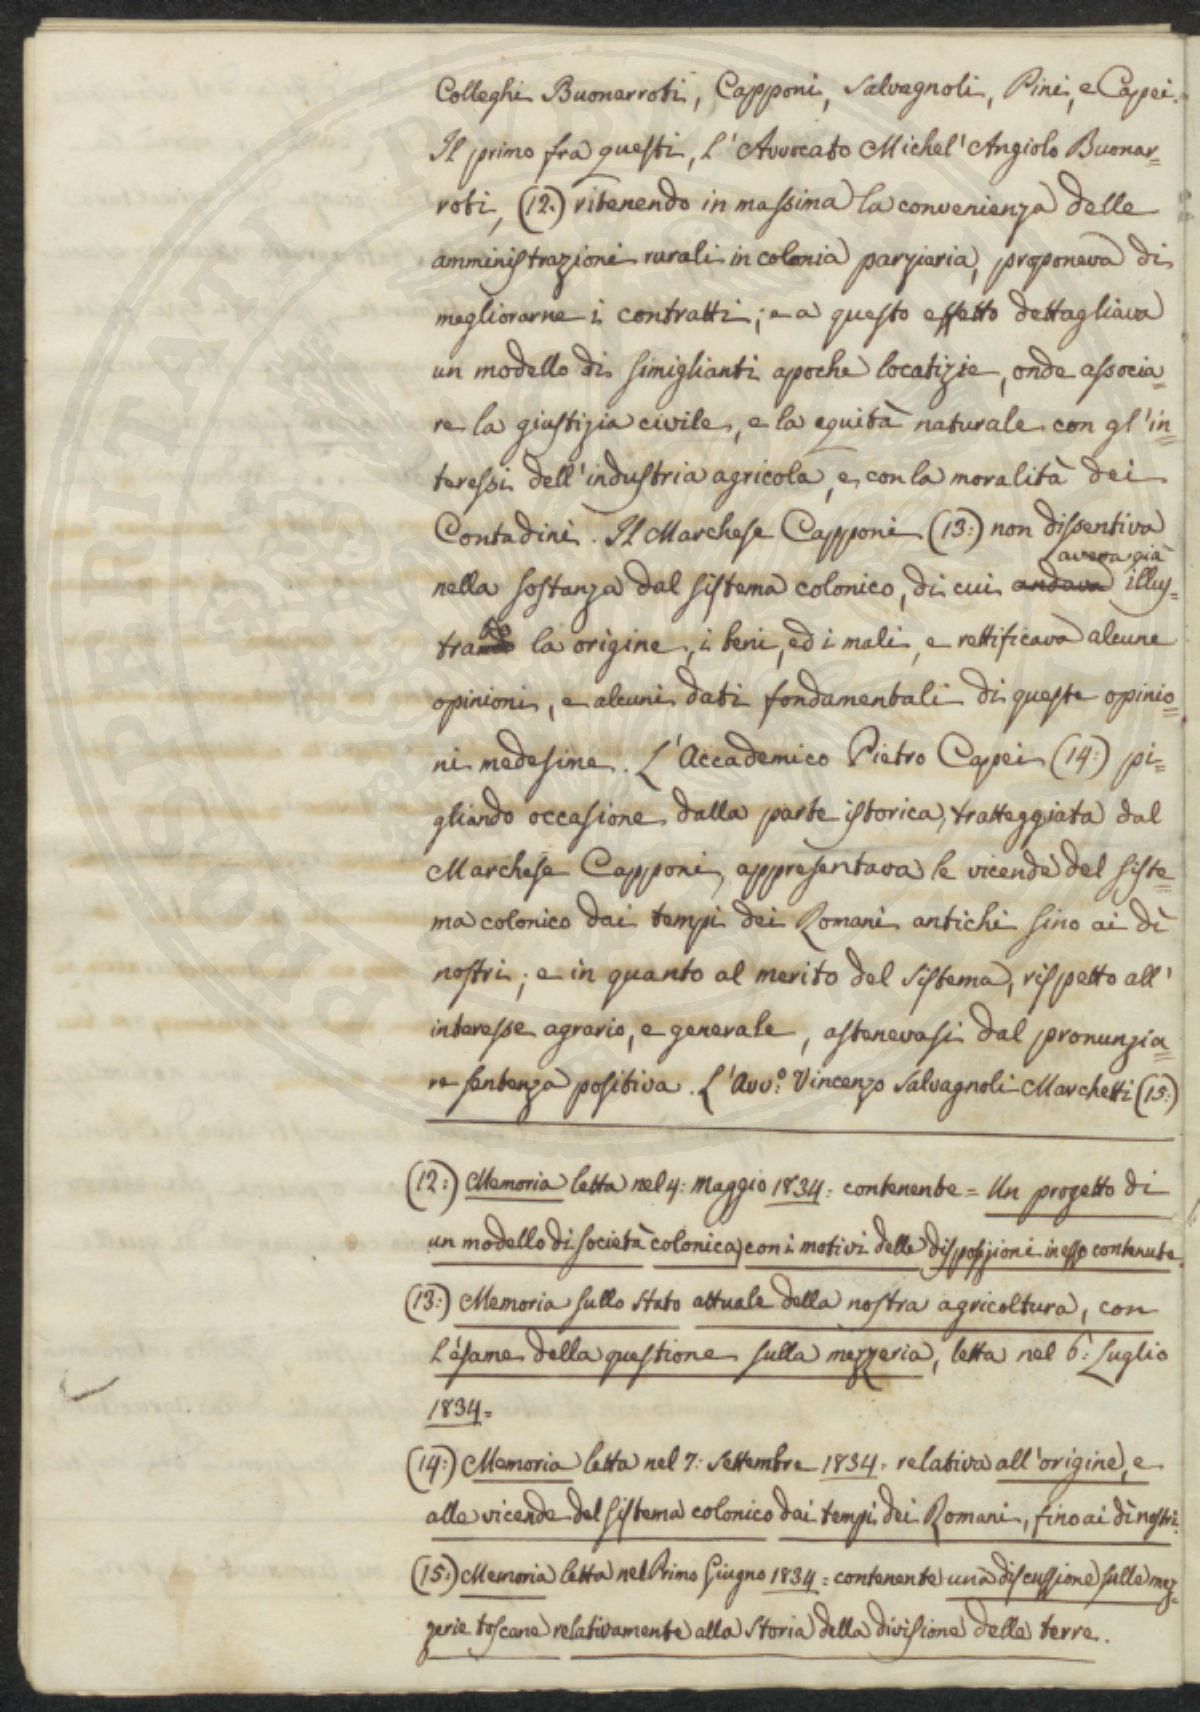 Colleghi Buonarroti, Capponi, Salvagnoli, Pini, e Capei.
Il primo fra questi, l'Avvocato Michel'Angiolo Buonar=
roti, (12.) ritenendo in massima la convenienza delle
amministrazioni rurali in colonia parziaria, proponeva di
megliorarne i contratti; e a questo effetto dettagliava
un modello di simiglianti apoche locatizie, onde associa=
re la giustizia civile, e la equità naturale con gl'in=
teressi dell'industria agricola, e con la moralità dei
Contadini. Il Marchese Capponi (13:) non dissentiva
aveva già
nella sostanza dal sistema colonico, di cui andava illus=
to
trando la origine, i beni, ed i mali, e rettificava alcune
opinioni, e alcuni dati fondamentali di queste opinio=
ni medesime. L'Accademico Pietro Capei (14:) pi=
gliando occasione dalla parte istorica, tratteggiata dal
Marchese Capponi, appresentava le vicende del siste=
ma colonico dai tempi dei Romani antichi sino ai dì
nostri; e in quanto al merito del sistema, rispetto all'
interesse agrario, e generale, astenevasi dal pronunzia=
re sentenza positiva. L'Avv:o Vincenzo Salvagnoli Marchetti (15:)
(12:) Memoria letta nel 4: Maggio 1834: contenente = Un progetto di
un modello di società colonica, con i motivi delle disposizioni in esso contenute.
(13:) Memoria sullo stato attuale della nostra agricoltura, con
l'esame della questione sulla mezzeria, letta nel 6: Luglio
1834=
(14:) Memoria letta nel 7: Settembre 1834: relativa all'origine, e
alle vicende del sistema colonico dai tempi dei Romani, fino ai dì nostri.
(15:) Memoria letta nel Primo Giugno 1834: contenente una discussione sulle mez=
zerie toscane relativamente alla storia della divisione delle terre.
PROSPERITATI PUBLICAE